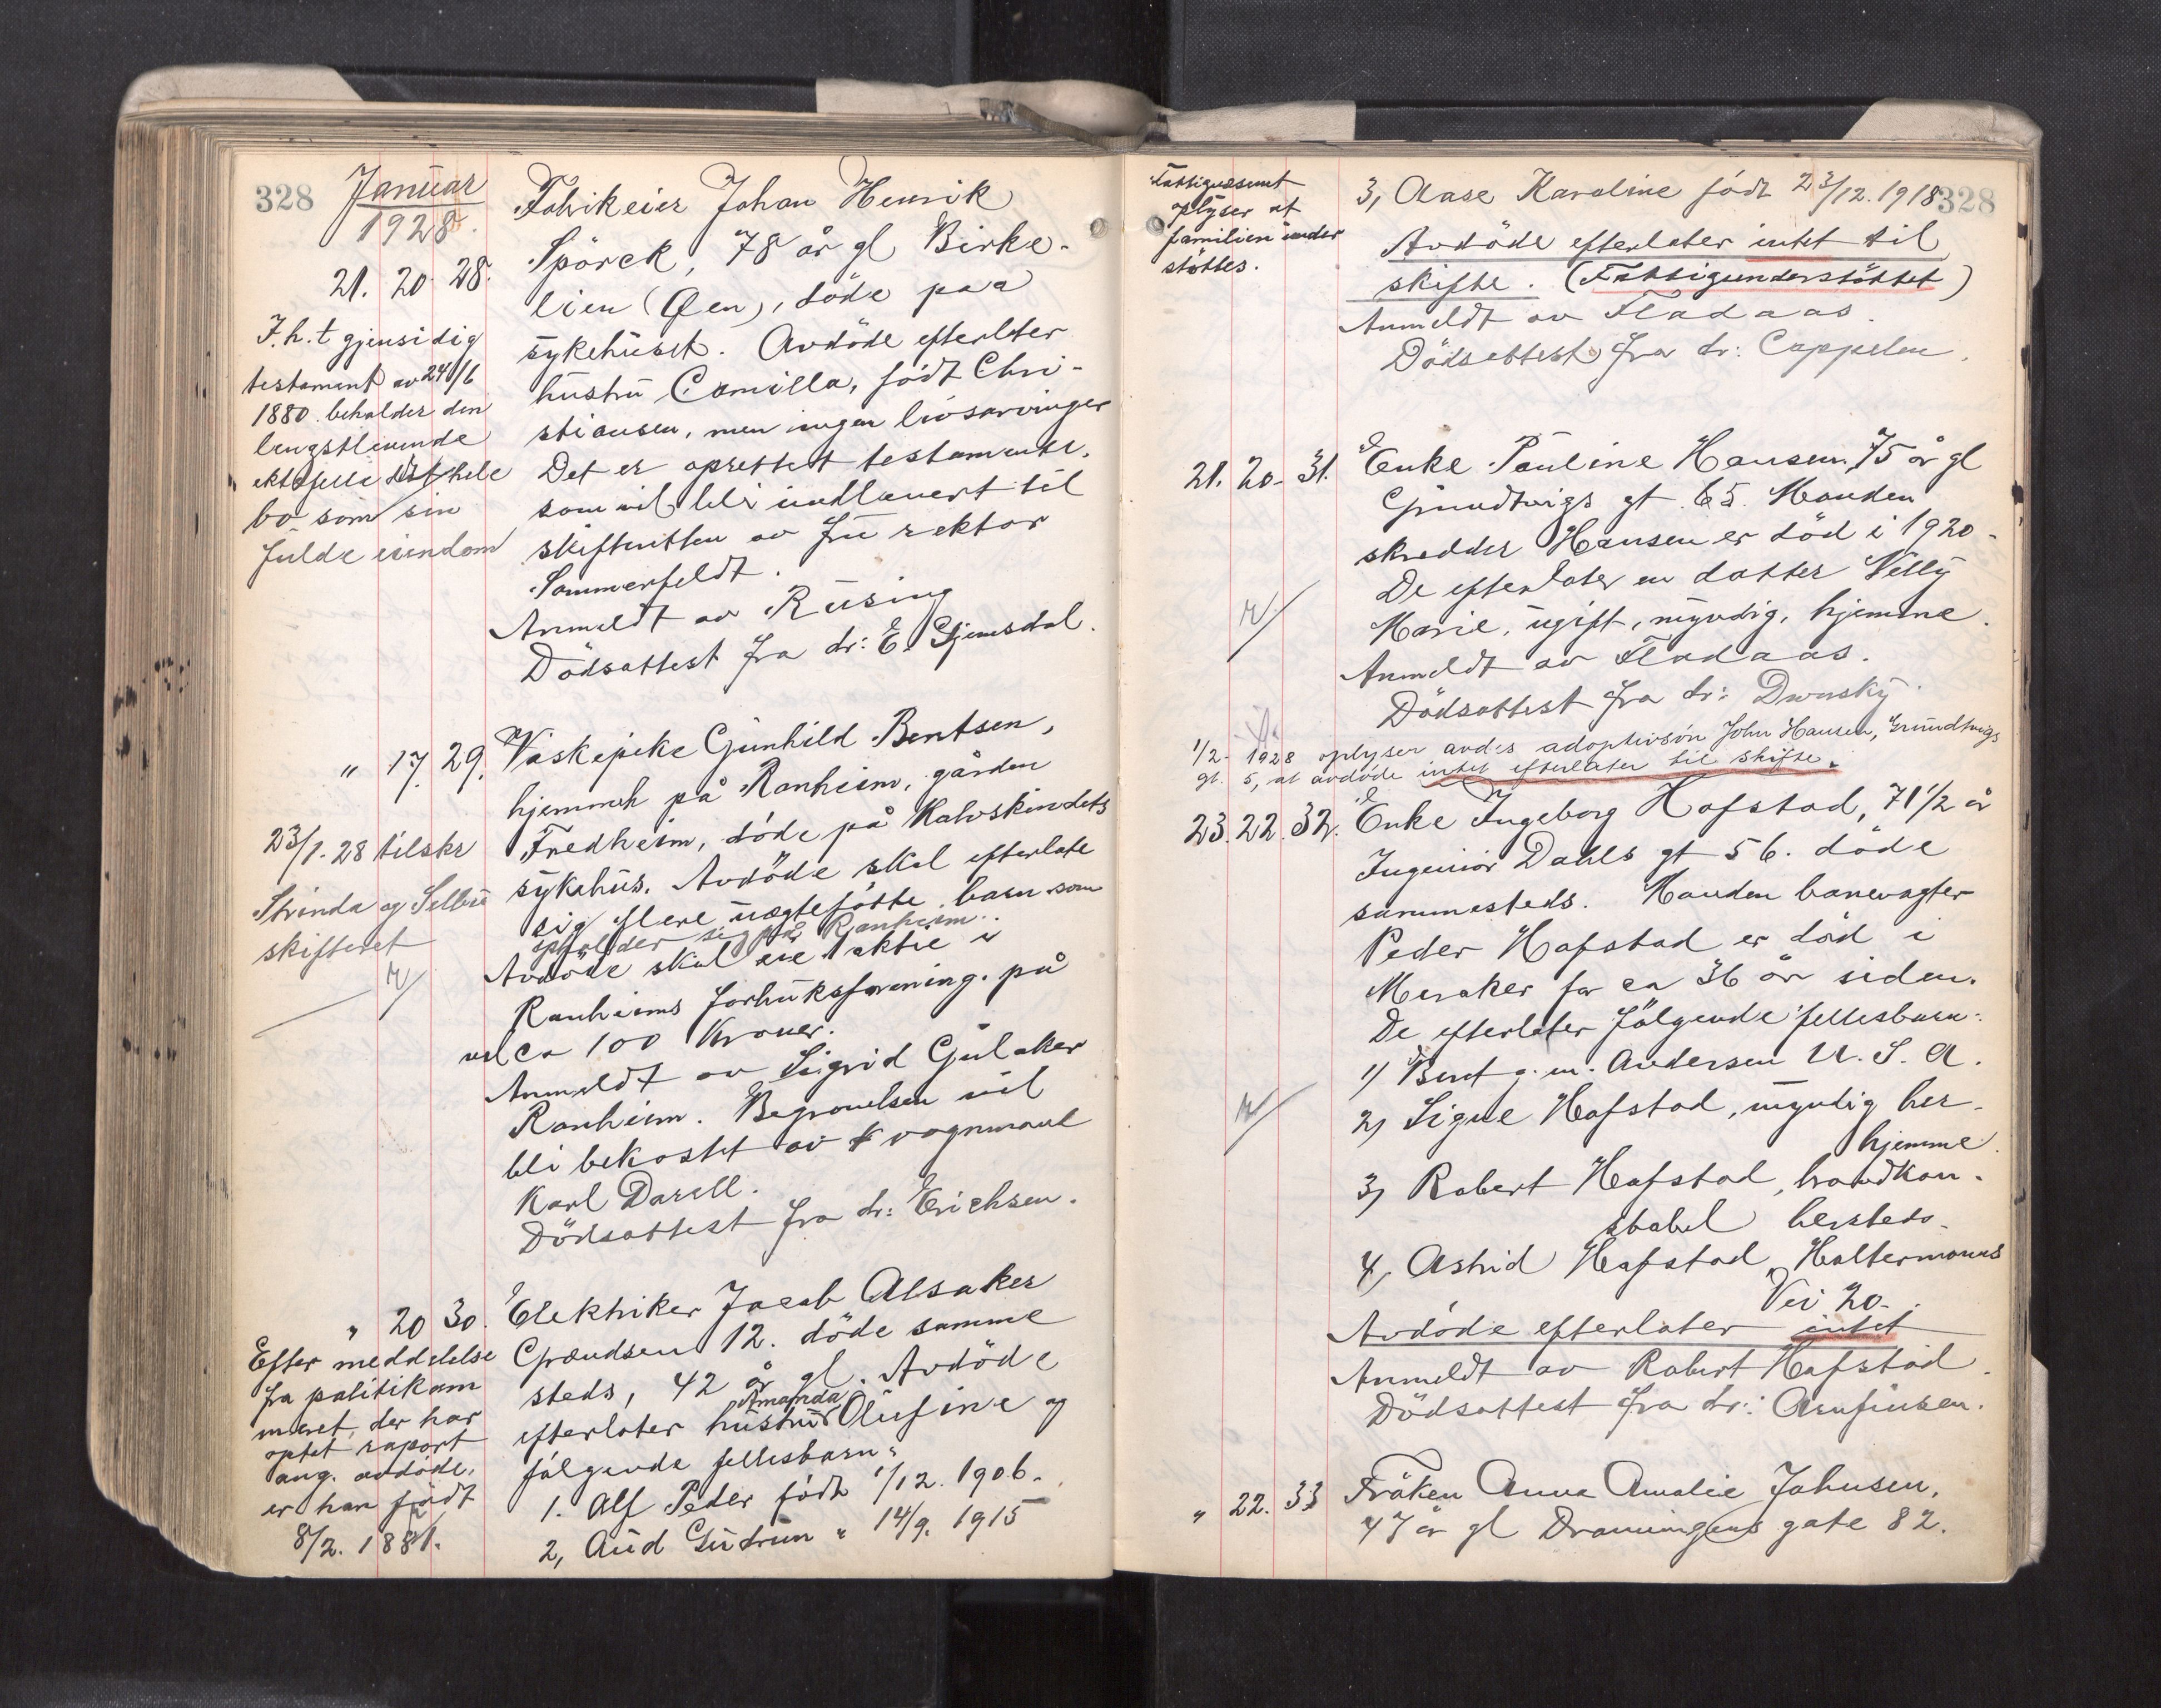 328
Januar
1928.
21. 20. 28.
Fabrikeier Johan Henrik
Spörck, 78 år gl Birke-
lien (Øen), döde paa
sykehuset. Avdöde efterlater
hustru Camilla, födt Chri-
stiansen, men ingen livsarvinger
Det er oprettet testamente,
som vil bli indlevert til
skifteretten av fru rektor
Sommerfeldt.
Anmeldt av Rüsing
Dödsattest fra dr: E. Gjemsdal.
I.h.t gjensidig
testament av 24/6
1880 beholder den
lengstlevende
ektefelle det hele
bo som sin
fulde eiendom
" 17. 29.
Vaskepike Gunhild Bentsen,
hjemmeh på Ranheim, gården
Fredheim, döde på Kalvskindets
sykehus. Avdöde skal efterlate
sig flere uægtefötte barn som
opholder sig på Ranheim.
Avdöde skal eie 1 aktie i
Ranheims forbruksforening på
ca 100 Kroner.
Anmeldt av Sigrid Gulaker
Ranheim. Begravelsen vil
bli bekostet av vognmand
Karl Darell.
Dödsattest fra dr: Erichsen.
23/1. 28 tilskr
Strinda og Selbu
skifteret
" 20 30.
Elektriker Jacob Alsaker
Grændsen 12. döde samme
steds, 42 år gl. Avdöde
Amanda
efterlater hustru Olufine og
fölgende fellesbarn:
1. Alf Peder födt 1/12. 1906.
2, Aud Gudrun " 14/9. 1915
Efter meddelelse
fra politikam
meret, der har
optat raport
ang. avdöde,
er han födt
8/2. 1881.
328
Fattigvesenet
oplyser at
familien under
stöttes.
3, Aase Karoline födt 23/12. 1918
Avdöde efterlater intet til
skifte. (Fattigunderstöttet)
Anmeldt av Fladaas.
Dödsattest fra dr: Cappelen.
21. 20. 31.
Enke Pauline Hansen, 75 år gl
Grundtvigs gt 65. Manden
skredder Hansen er död i 1920.
De efterlater en datter Villy
Marie, ugift, myndig, hjemme.
Anmeldt av Fladaas.
Dödsattest fra dr: Dvorsky.
1/2 - 1928 oplyser avd.s adoptivsön John Hansen, Grundtvigs
gt. 5, at avdöde intet efterlater til skifte.
23. 22. 32.
Enke Ingeborg Hafstad, 71 1/2 år
Ingeniör Dahls gt 56. döde
sammesteds. Manden banevogter
Peder Hafstad er död i
Meraker for ca 36 år siden.
De efterlater fölgende fellesbarn:
1) Beret g. m. Andersen U. S. A.
2) Signe Hafstad, myndig her-
hjemme.
3) Robert Hafstad, brandkon-
stabel hersteds.
4, Astrid Hafstad, Haltermanns
Vei 20.
Avdöde efterlater intet
Anmeldt av Robert Hafstad.
Dödsattest fra dr: Arnfinsen.
" 22. 33
Fröken Anna Amalie Johnsen,
47 år gl Dronningens gate 82.